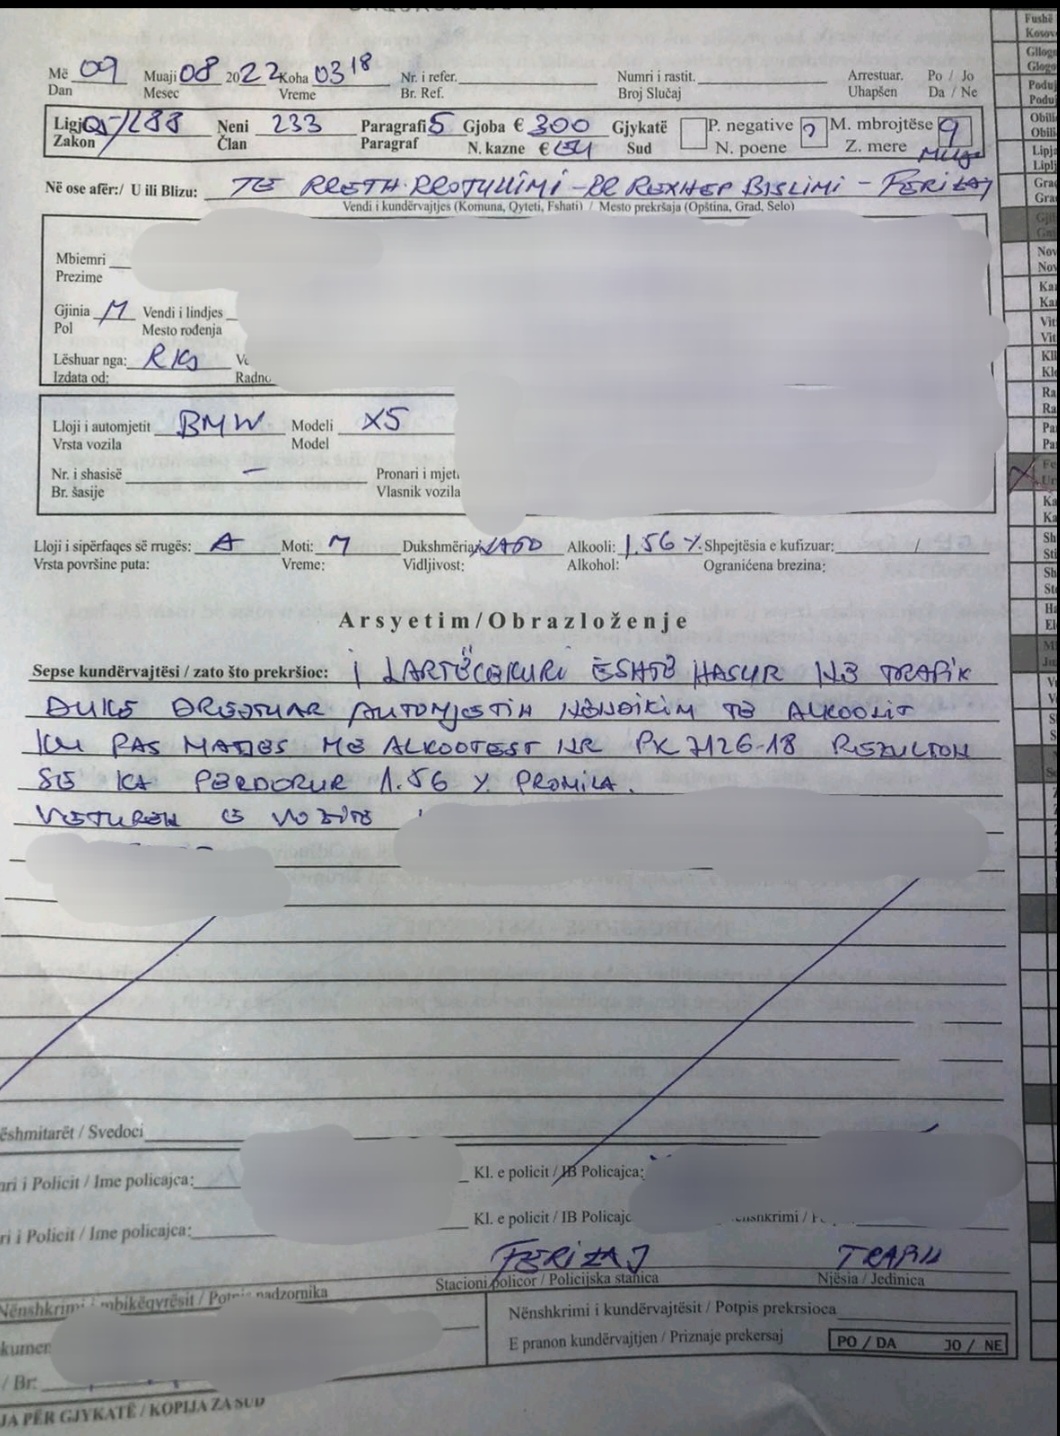 Më 09 Muaji 08 2022 Koha 03 18 Nr. i refer. Numri i rastit. Arrestuar. Po / Jo
Dan Mesec Vreme Br. Ref. Broj Slučaj Uhapšen Da / Ne
Ligji 05/L88 Neni 233 Paragrafi 5 Gjoba € 300 Gjykatë P. negative M. mbrojtëse 9
Zakon Član Paragraf N. kazne € Sud N. poene Z. mere
Në ose afër:/ U ili Blizu: TE RRETH RROTULLIMI - RR REXHEP BISLIMI - FERIZAJ
Vendi i kundërvajtjes (Komuna, Qyteti, Fshati) / Mesto prekršaja (Opština, Grad, Selo)
Mbiemri
Prezime
Gjinia M Vendi i lindjes
Pol Mesto rođenja
Lëshuar nga: RKS
Izdata od: Radno
Lloji i automjetit BMW Modeli X5
Vrsta vozila Model
Nr. i shasisë - Pronari i mjet
Br. šasije Vlasnik vozila
Lloji i sipërfaqes së rrugës: A Moti: M Dukshmëria: NATO Alkooli: 1.56 % Shpejtësia e kufizuar: /
Vrsta površine puta: Vreme: Vidljivost: Alkohol: Ograničena brezina:
Arsyetim/Obrazloženje
Sepse kundërvajtësi / zato što prekršioc: I LARTËCEKURI ËSHTË HASUR NË TRAFIK
DUKE DREJTUAR AUTOMJETIN NËNDIKIM TË ALKOOLIT
KU PAS MATJES ME ALKOOTEST NR PK7126-18 REZULTON
SE KA PERDORUR 1.56 % PROMILA.
VETUREN E VOZITE
ëshmitarët / Svedoci
ri i Policit / Ime policajca: Kl. e policit / IB Policajca:
ri i Policit / Ime policajca: Kl. e policit / IB Policajc
FERIZAJ TRAFIK
Stacioni policor / Policijska stanica Njësia / Jedinica
Nënshkrimi i mbikëqyrësit / Potpis nadzornika
Nënshkrimi i kundërvajtësit / Potpis prekrsioca
E pranon kundërvajtjen / Priznaje prekersaj PO / DA JO / NE
kumen
/ Br:
JA PËR GJYKATË / KOPIJA ZA SUD